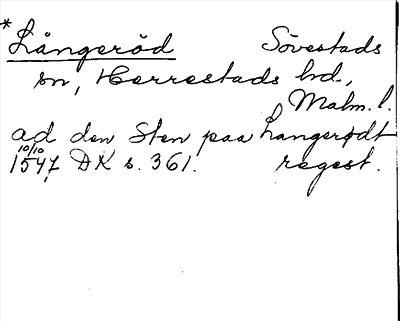 *Långeröd Sövestads
sn, Herrestads hd,
Malm. l.
ad den Sten paa Langerødt
10/10 1547 DK s. 361. regest.